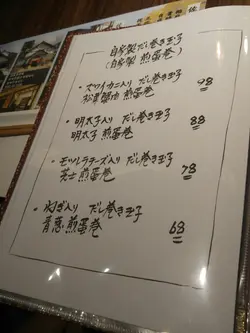 自家製だし巻き玉子
(自家製 煎蛋卷)
・ズワイカニ入り だし巻き玉子 98
松葉蟹肉 煎蛋卷
・明太子入り だし巻き玉子 88
明太子 煎蛋卷
・モツレラチーズ入り だし巻き玉子 78
芝士 煎蛋卷
・ねぎ入り だし巻き玉子 68
青葱 煎蛋卷